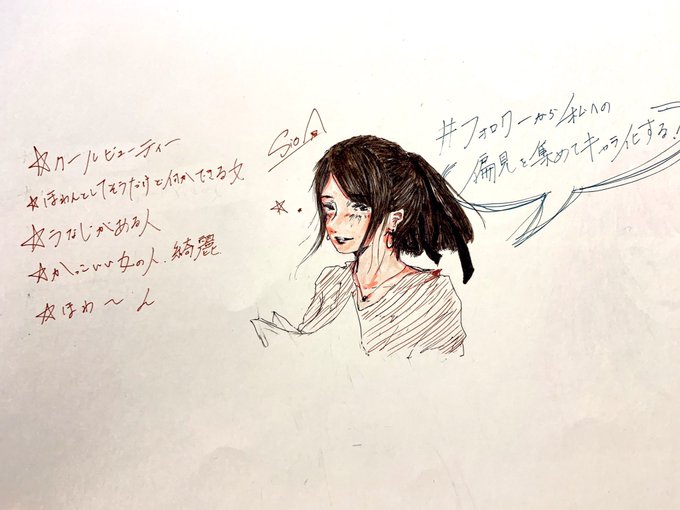 ☆クールビューティー
☆ほわんとしてそうだけど何かできる女
☆うなじがある人
☆かっこいい女の人、綺麗
☆ほわ〜ん
#フォロワーから私への
偏見を集めてキャラ化する!